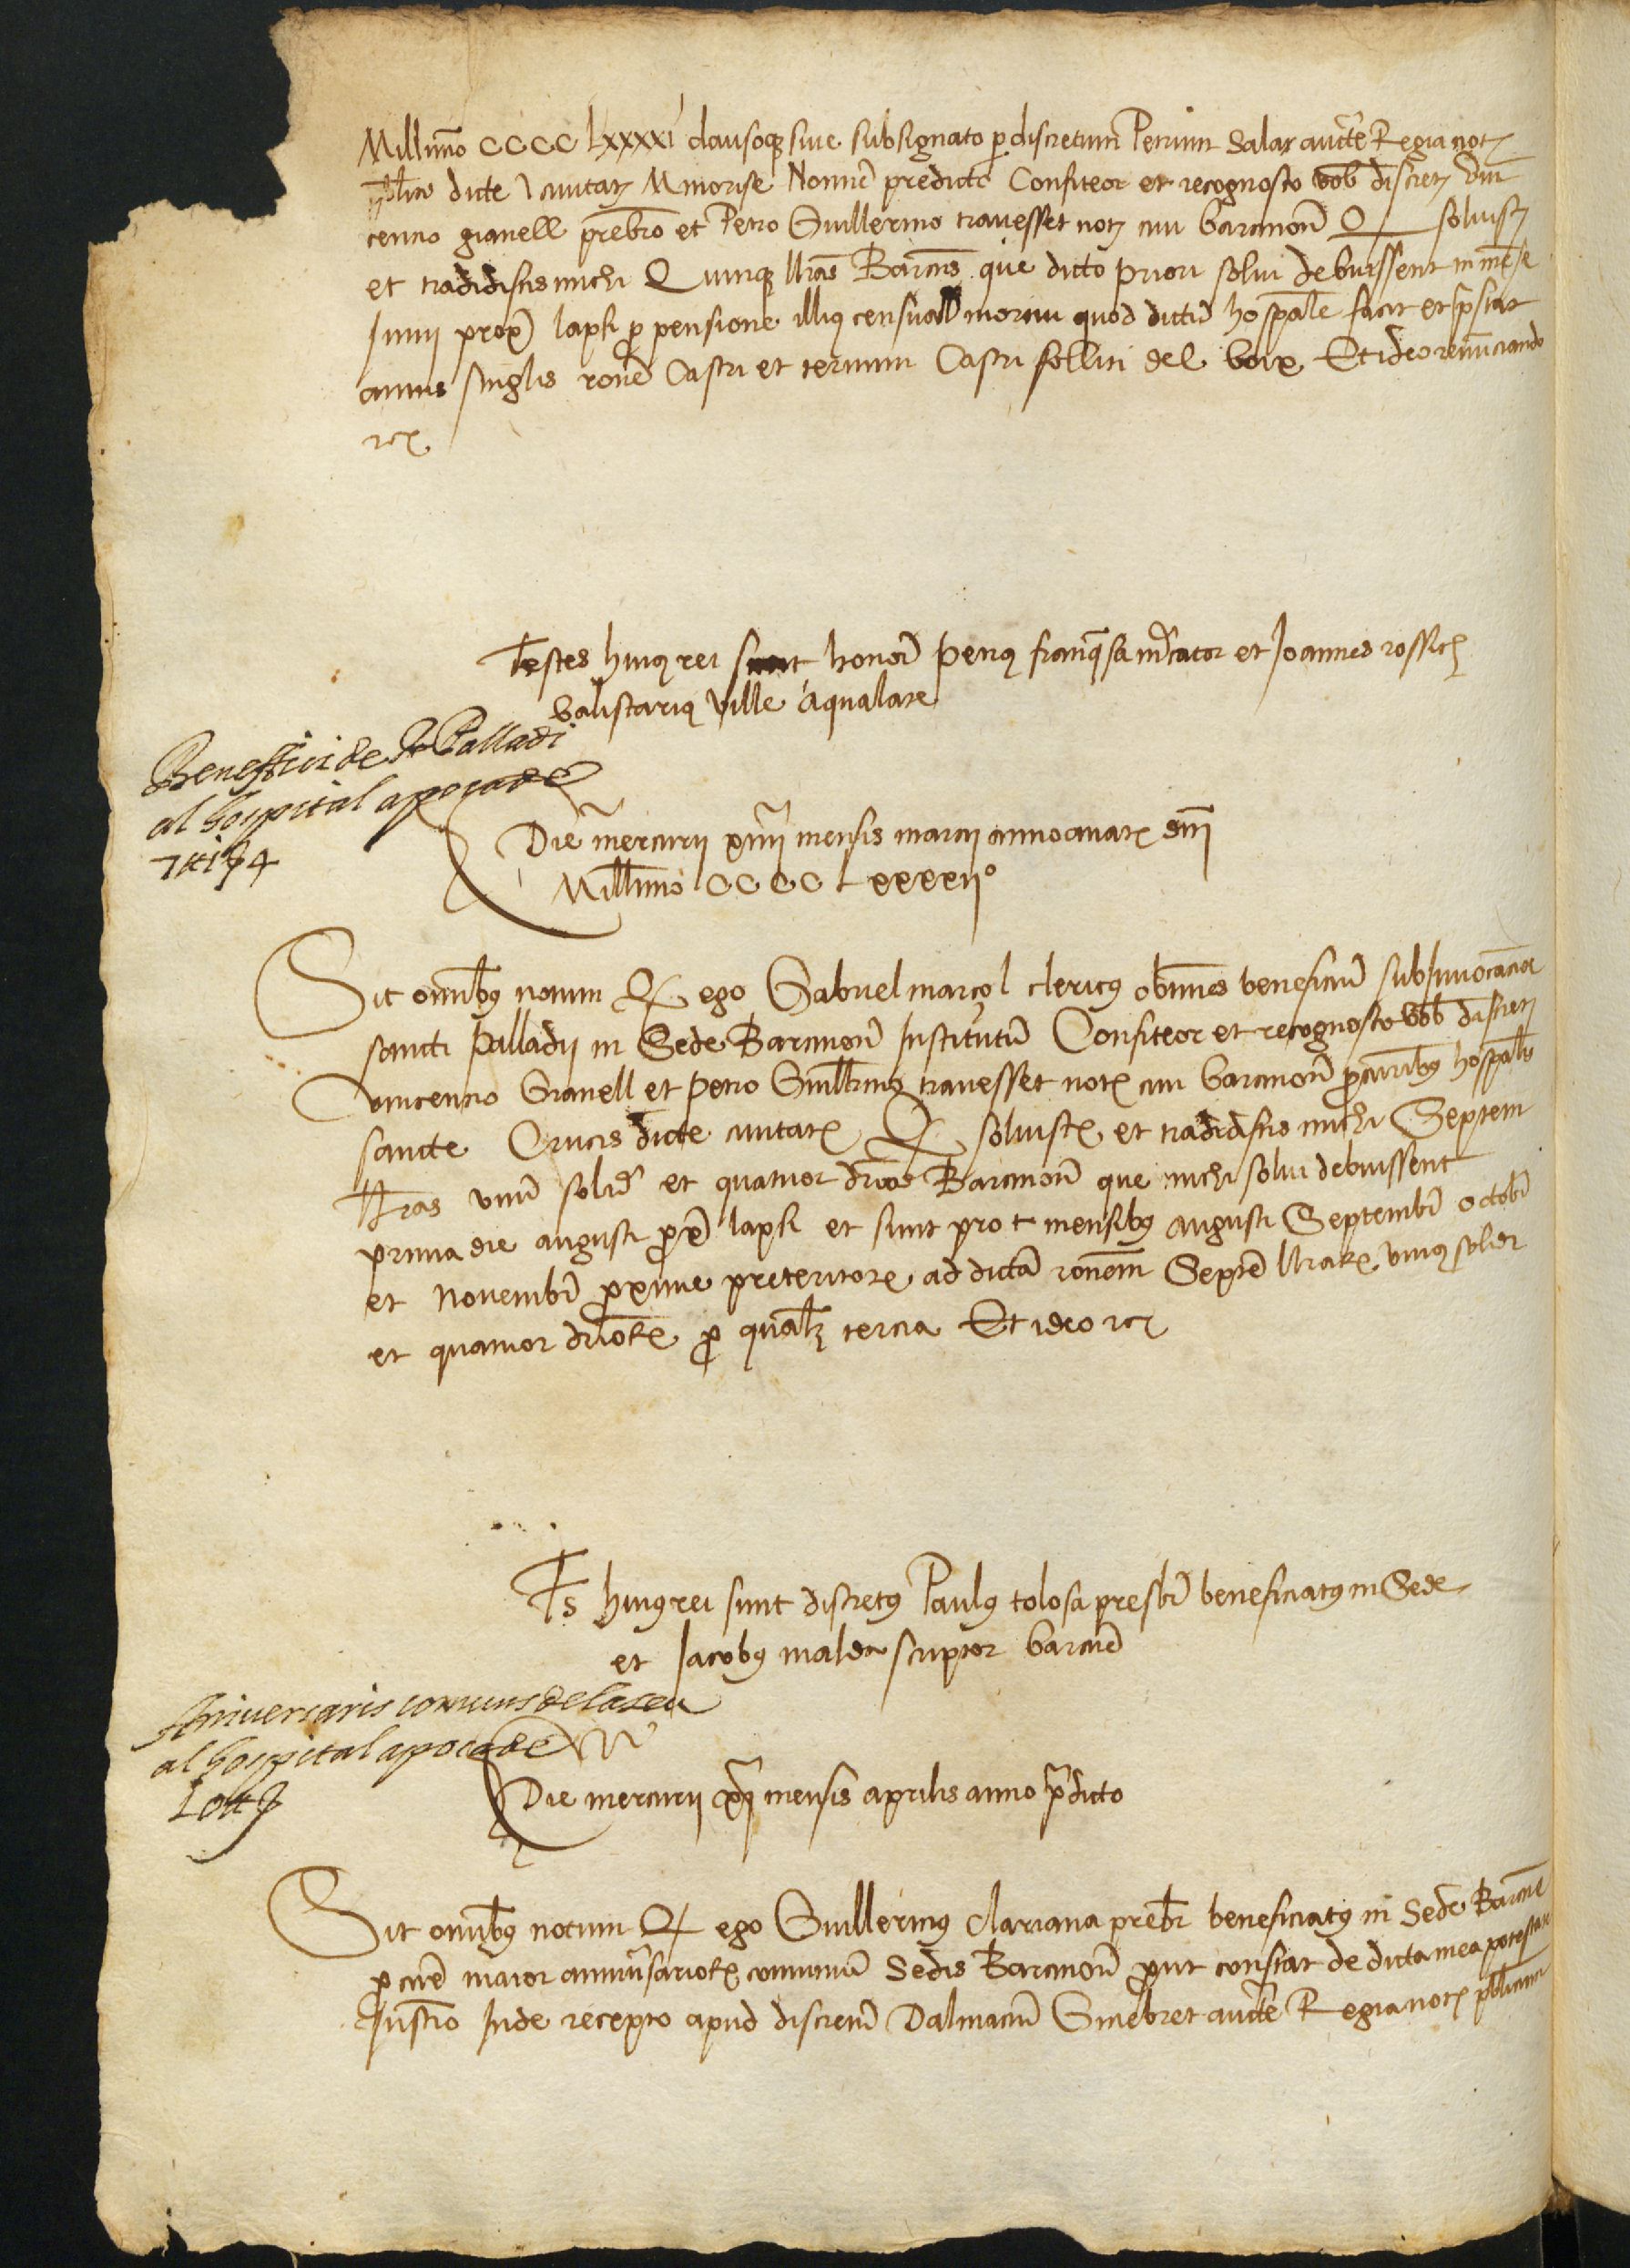 Millimo CCCC lxxxxi clausoq sive subsignato p discretum Petrum Salar aucte Regia not
plico dicte civitat Minorise Nomine predicto Confiteor et recognosco vob discret Vin
cencio granell prebro et Petro Guillermo travesset not civi barcinone Q solvist
et tradidistis michi Quinq llras Barcns que dicto priori solvi debuissent in mense
Junii prox lapsi p pensione illius censual mortui quod dictu hospale facit et pstat
annis singlis rone Castri et termini Castri folliti del boix Et ideo renunciando
etc
Testes huius rei sunt honor Petrus franqsa mcator et Joannes rossich
balistarius ville Aqualate
Benefici de St Palladi
al hospital apocade
Die mercurii xiiii mensis marcii anno a nat dni
Millimo CCCC Lxxxxiio
Sit omibus notum Q ego Gabriel marçol clericus obtines beneficiu sub invocacioe
sancti Palladii in Sede Barcinone Institutu Confiteor et recognosco vob discret
vincencio Granell et Petro Guillmus travesset not civi barcinone pcuribus hospalis
sancte Crucis dicte civitat Q solvist et tradidistis michi Septem
llras unu solid et quatuor drios Barcinone que michi solvi debuissent
prima die augusti pxe lapsi et sunt pro t mensibus augusti Septembr octobr
et novembr pxime preteritor ad dicta ronem Septe llrar unius solidi
et quatuor drior p qualz tercia Et ideo etc
Ts huius rei sunt discretus Paulus tolosa presbr beneficiatus in Sede
et Jacobus malda scriptor barcne
Aniversaris comuns de la seu
al hospital apocade
Die mercurii xi mensis aprilis anno pdicto
Sit omibus notum Q ego Guillermus clariana prebr beneficiatus in Sede Barcne
pcure maior annivsarior comuniu Sedis Barcinone put constat de dicta mea potestate
Instro Inde recepto apud discretu Dalmaciu Ginebret aucte Regia not plicum